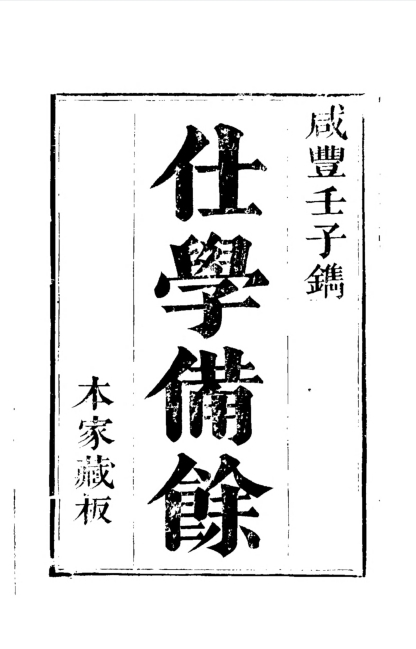 咸豐壬子鐫
仕學備餘
本家藏板